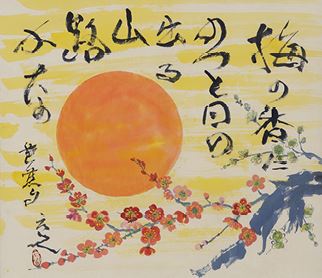 梅の香に
のつと日の
出る
山
路
かな
芭蕉句